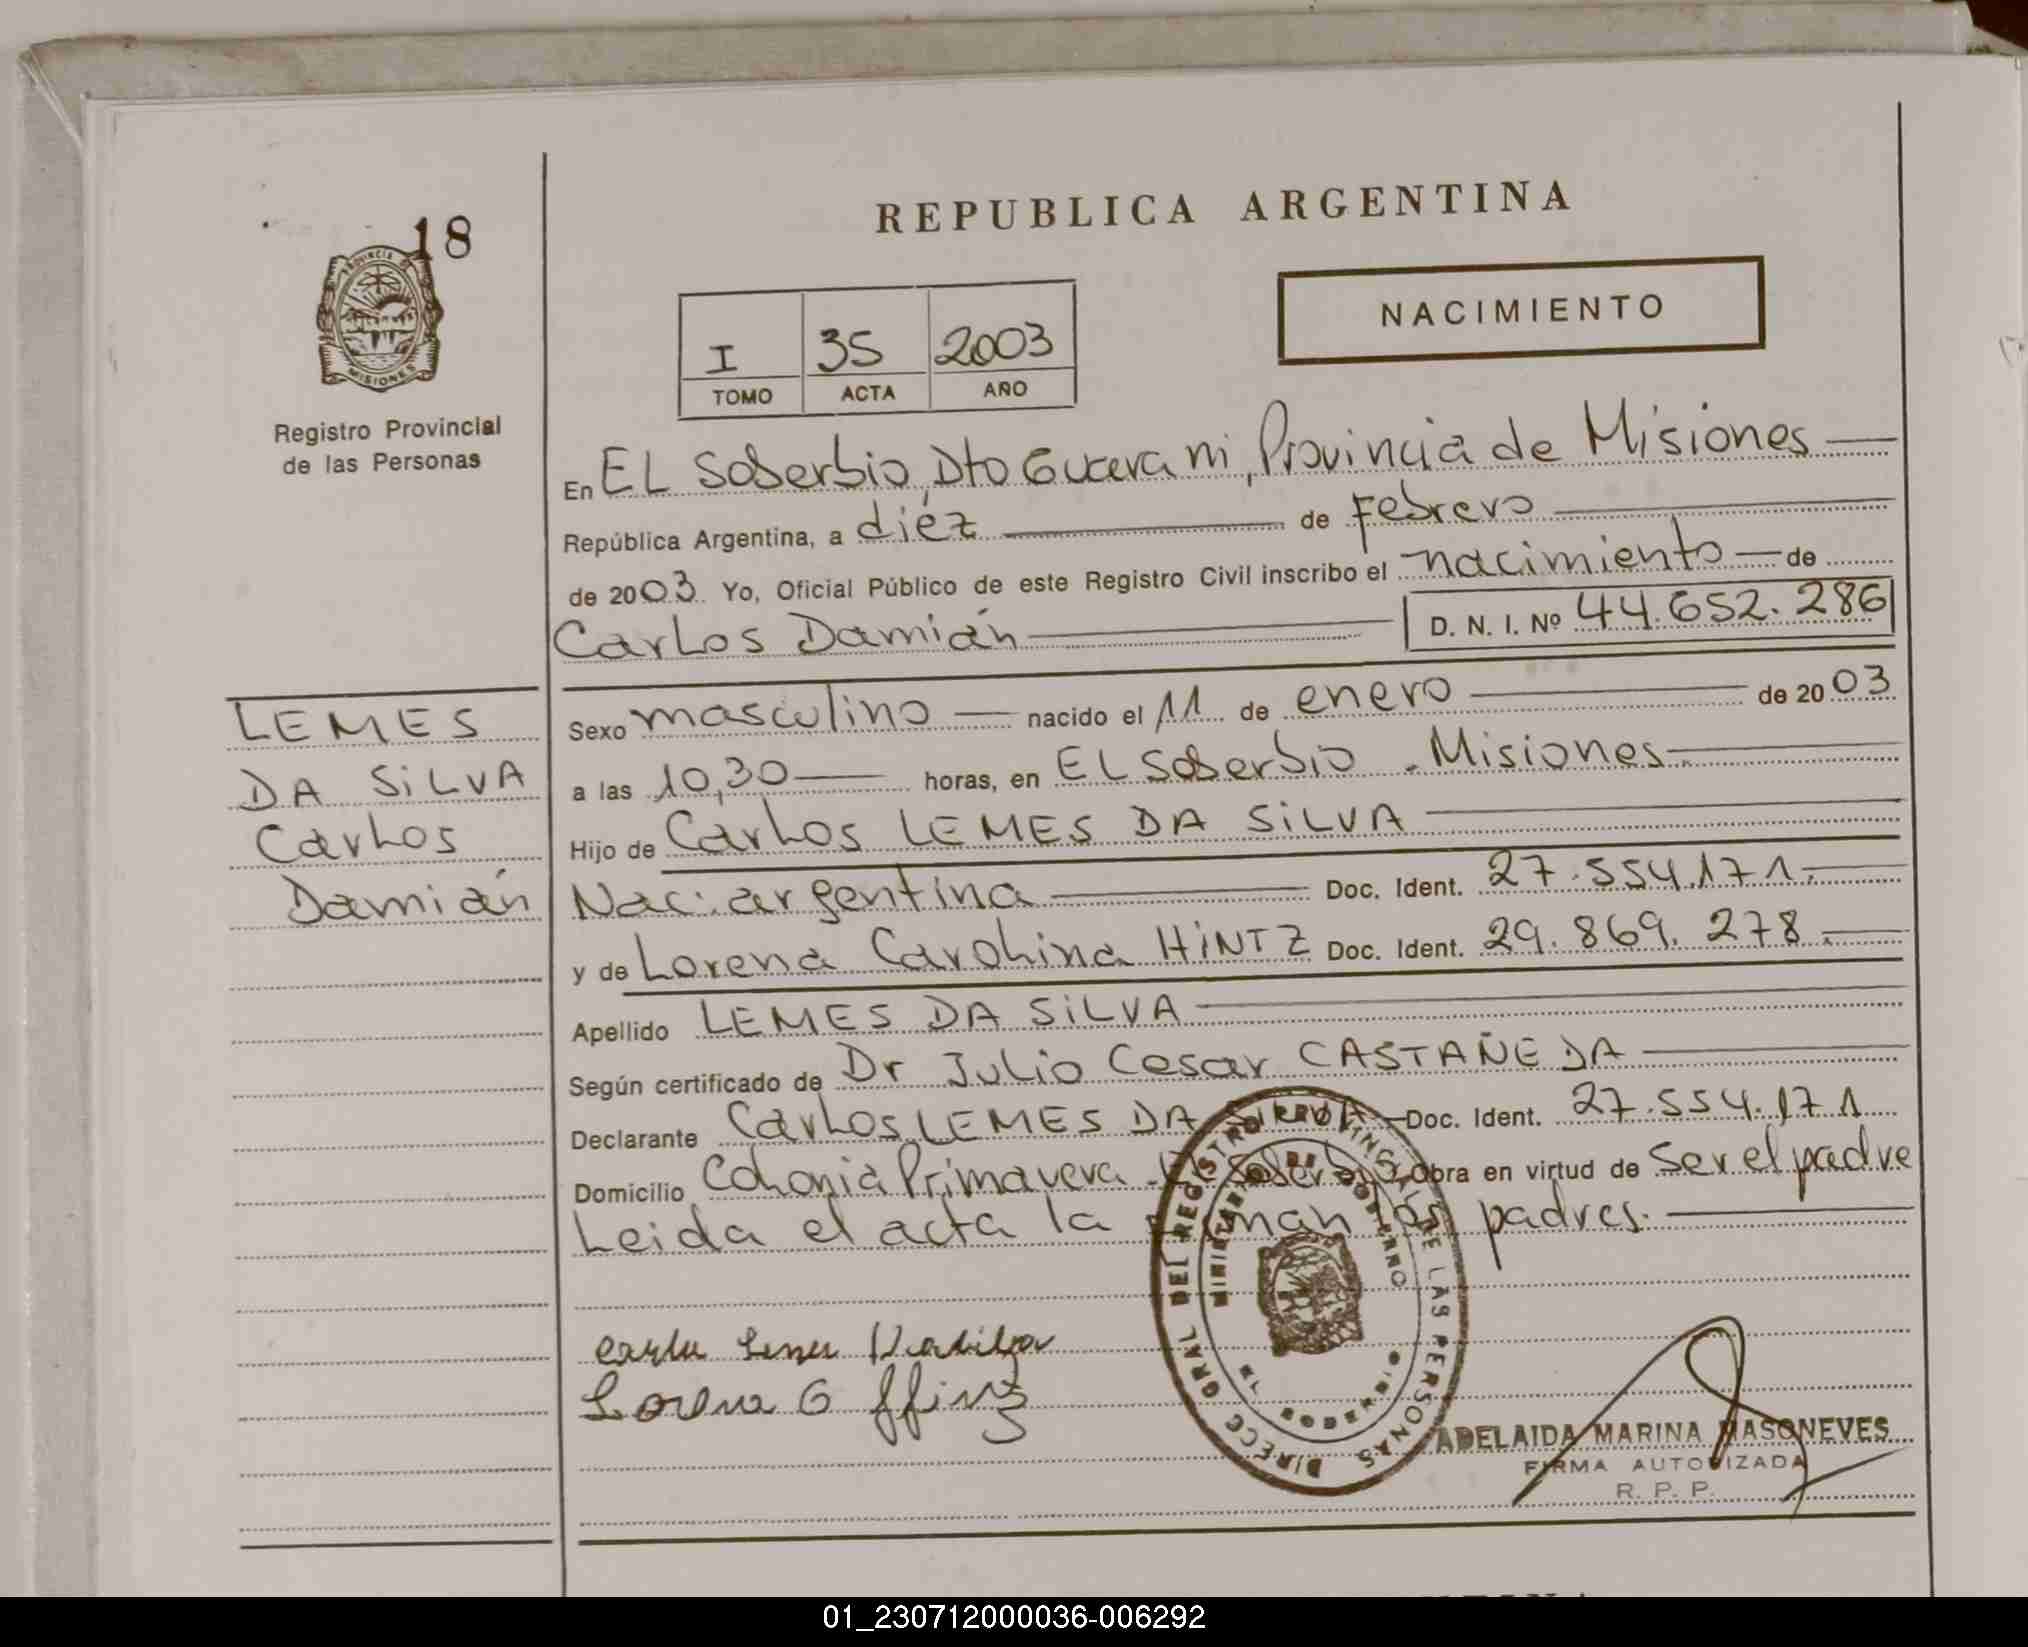 REPUBLICA ARGENTINA
18
PROVINCIA DE
MISIONES
Registro Provincial
de las Personas
NACIMIENTO
I 35 2003
TOMO ACTA AÑO
En EL Soberbio, Dto Guarani, Provincia de Misiones
República Argentina, a diéz de Febrero
de 2003. Yo, Oficial Público de este Registro Civil inscribo el nacimiento de
Carlos Damián D. N. I. Nº 44.652.286
LEMES
DA SiLVA
Carlos
Damián
Sexo masculino nacido el 11 de enero de 2003
a las 10,30 horas, en EL Soberbio - Misiones.
Hijo de Carlos LEMES DA SiLVA
Nac: argentina Doc. Ident. 27.554.171.
y de Lorena Carolina HiNTZ Doc. Ident. 29.869.278.
Apellido LEMES DA SiLVA
Según certificado de Dr Julio Cesar CASTAÑEDA
Declarante Carlos LEMES DA SiLVA Doc. Ident. 27.554.171
Domicilio Colonia Primavera - El Soberbio, Obra en virtud de Ser el padre
Leida el acta la firman los padres.
DIRECC GRAL DEL REGISTRO PROVINCIAL DE LAS PERSONAS
MINISTERIO DE GOBIERNO
Lorena C Hintz
ADELAIDA MARINA MASONEVES
FIRMA AUTORIZADA
R. P. P.
01_230712000036-006292